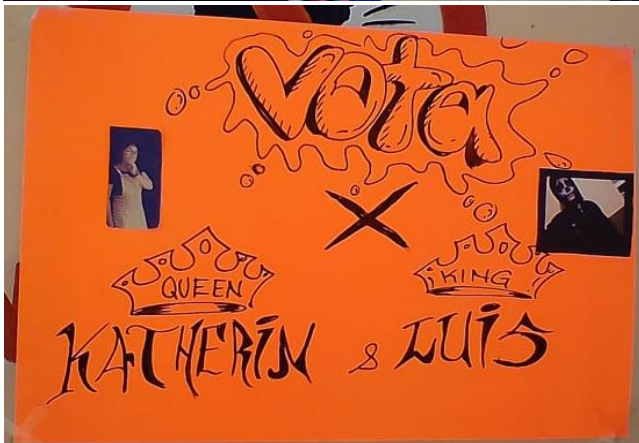 Vota
X
QUEEN KING
KATHERIN & LUIS